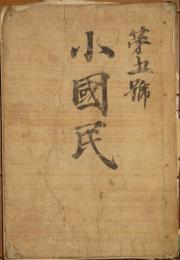 第五號
小國民